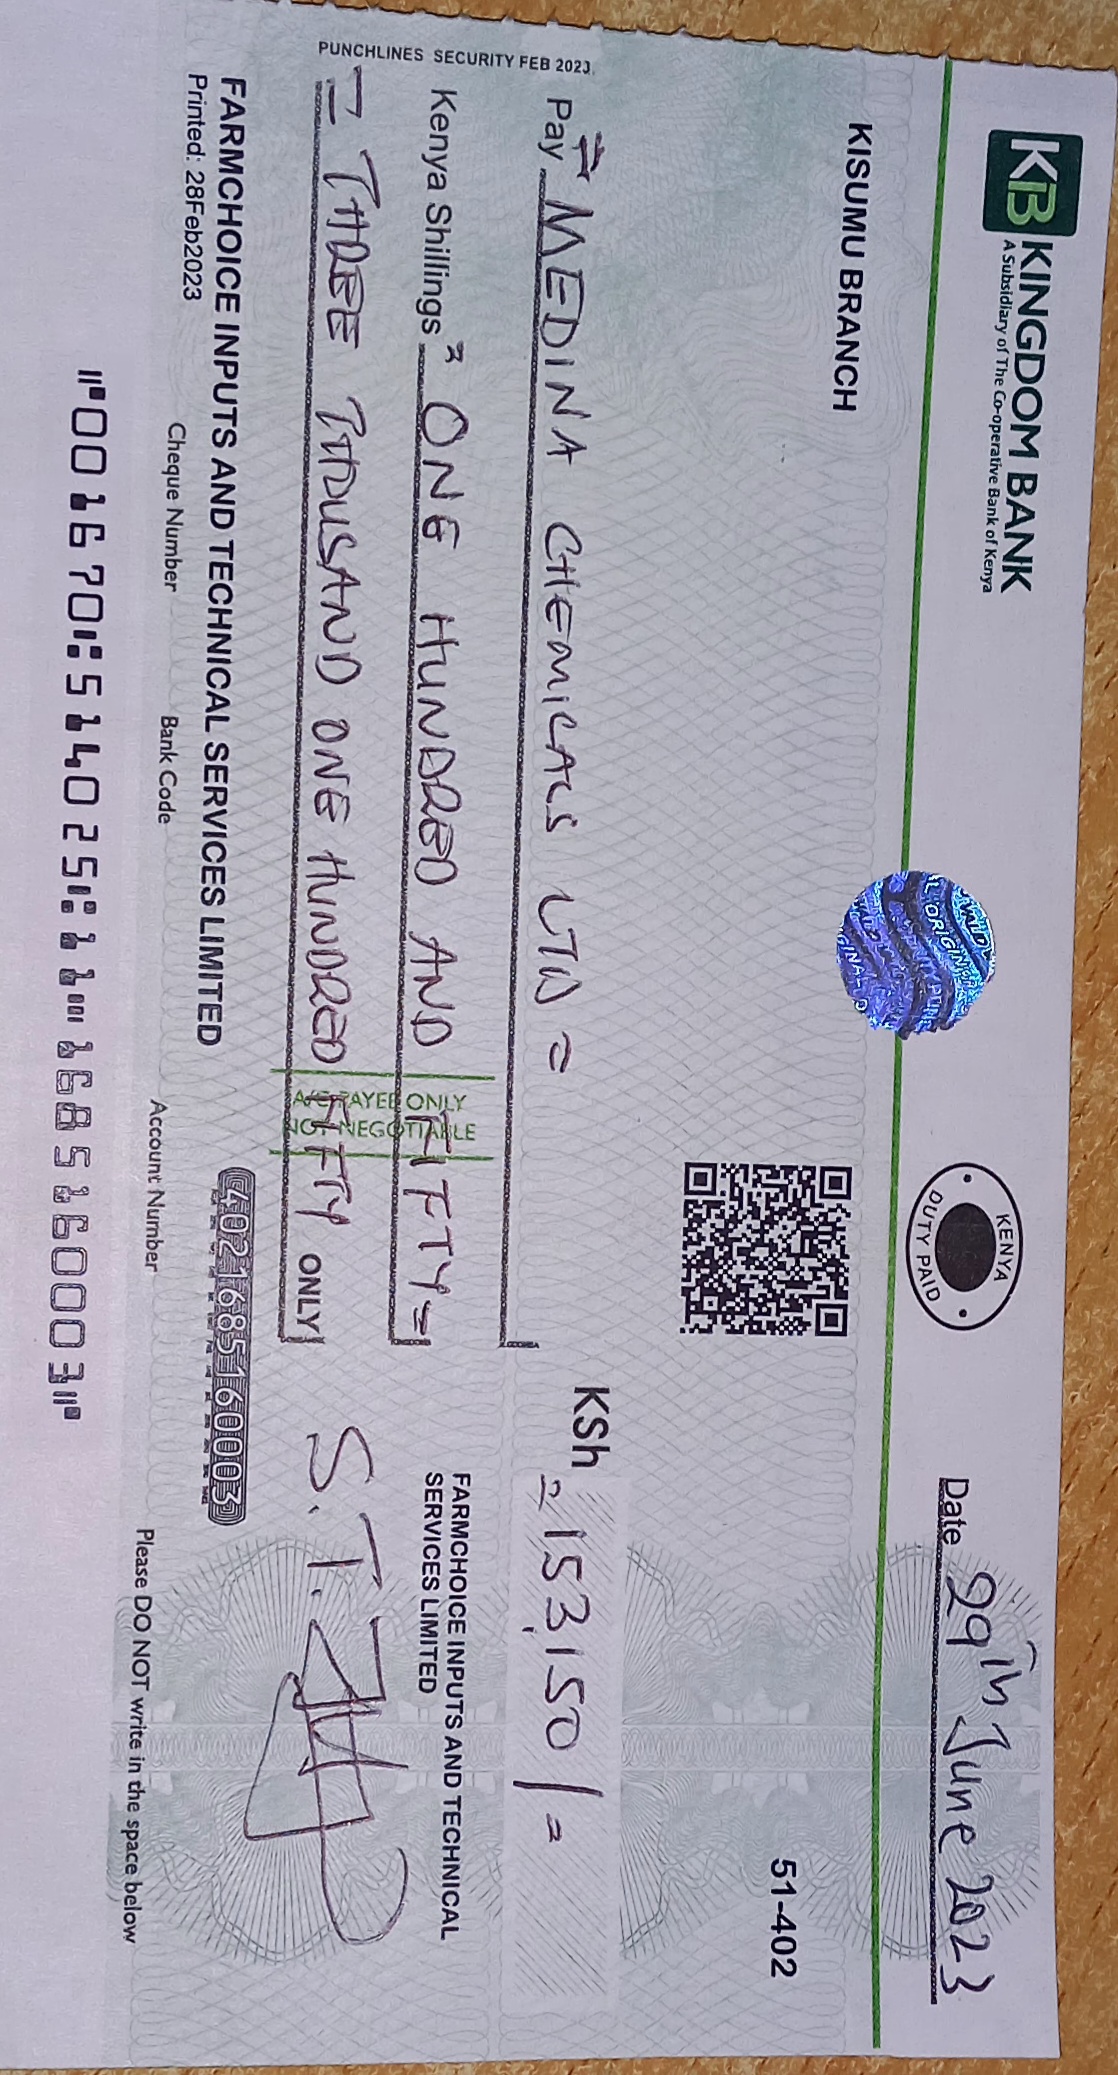 KB KINGDOM BANK
A Subsidiary of The Co-operative Bank of Kenya
KENYA
DUTY PAID
Date 29th June 2023
KISUMU BRANCH
51-402
VALID
ORIGINAL
PUNCHLINES SECURITY FEB 2023
Pay = MEDINA CHEMICALS LTD =
KSh = 153,150/=
Kenya Shillings = ONE HUNDRED AND FIFTY =
= THREE THOUSAND ONE HUNDRED FIFTY ONLY
A/C PAYEE ONLY
NOT NEGOTIABLE
FARMCHOICE INPUTS AND TECHNICAL
SERVICES LIMITED
S.T.
FARMCHOICE INPUTS AND TECHNICAL SERVICES LIMITED
Printed: 28Feb2023
4021685160003
Cheque Number Bank Code Account Number Please DO NOT write in the space below
⑈001670⑆514025⑆11⑉1685160003⑈